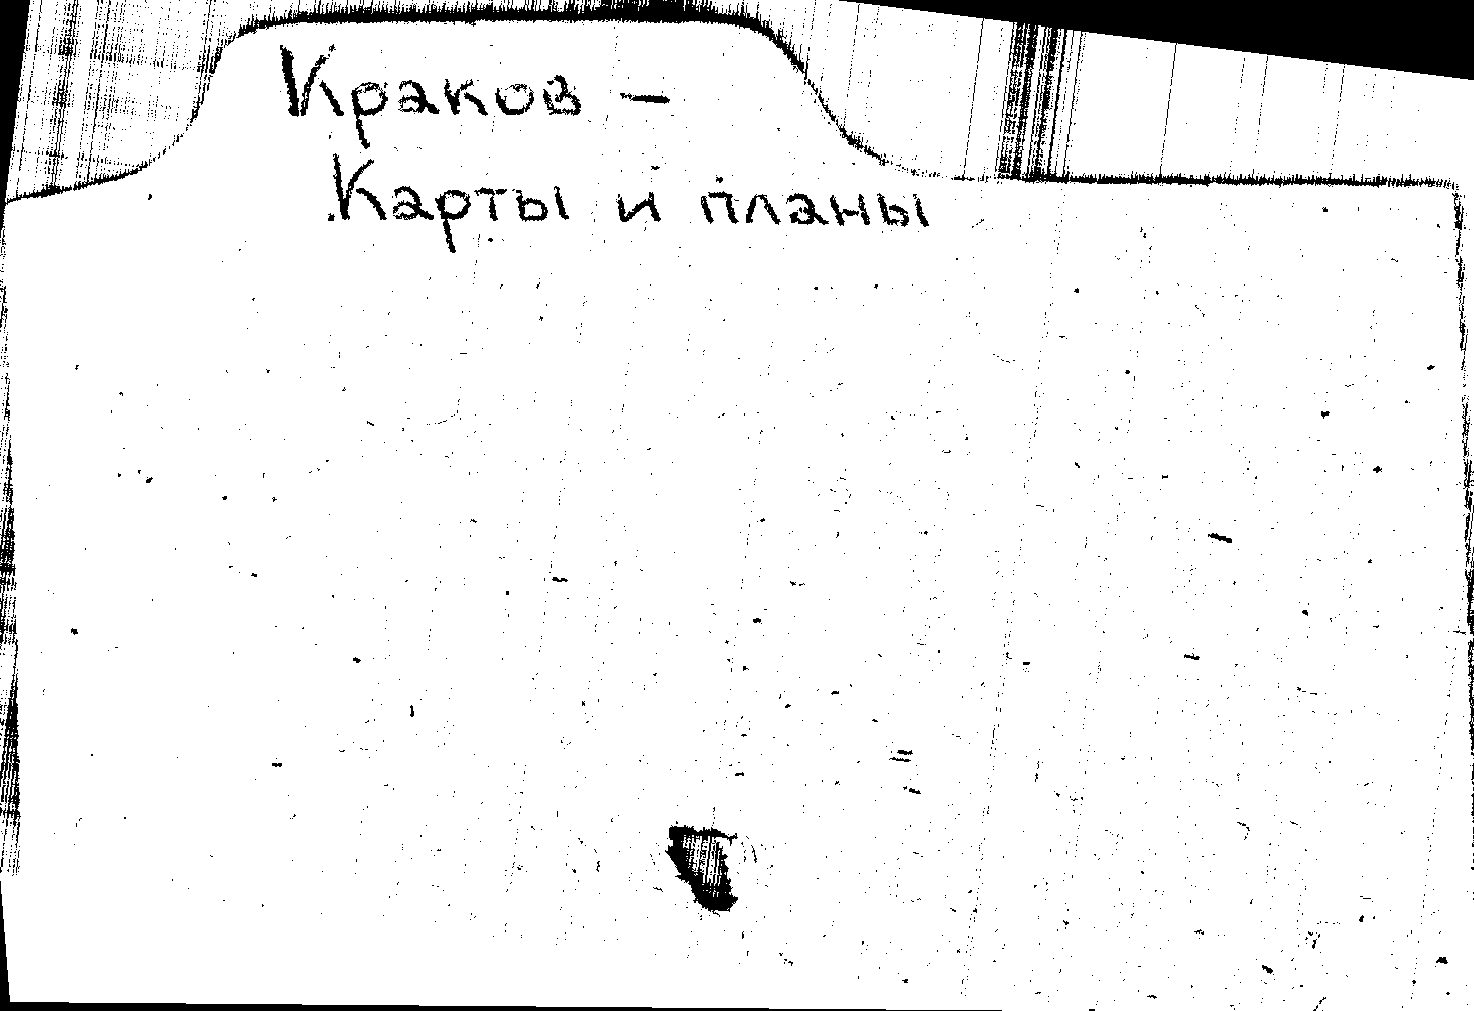 Краков —
Карты и планы